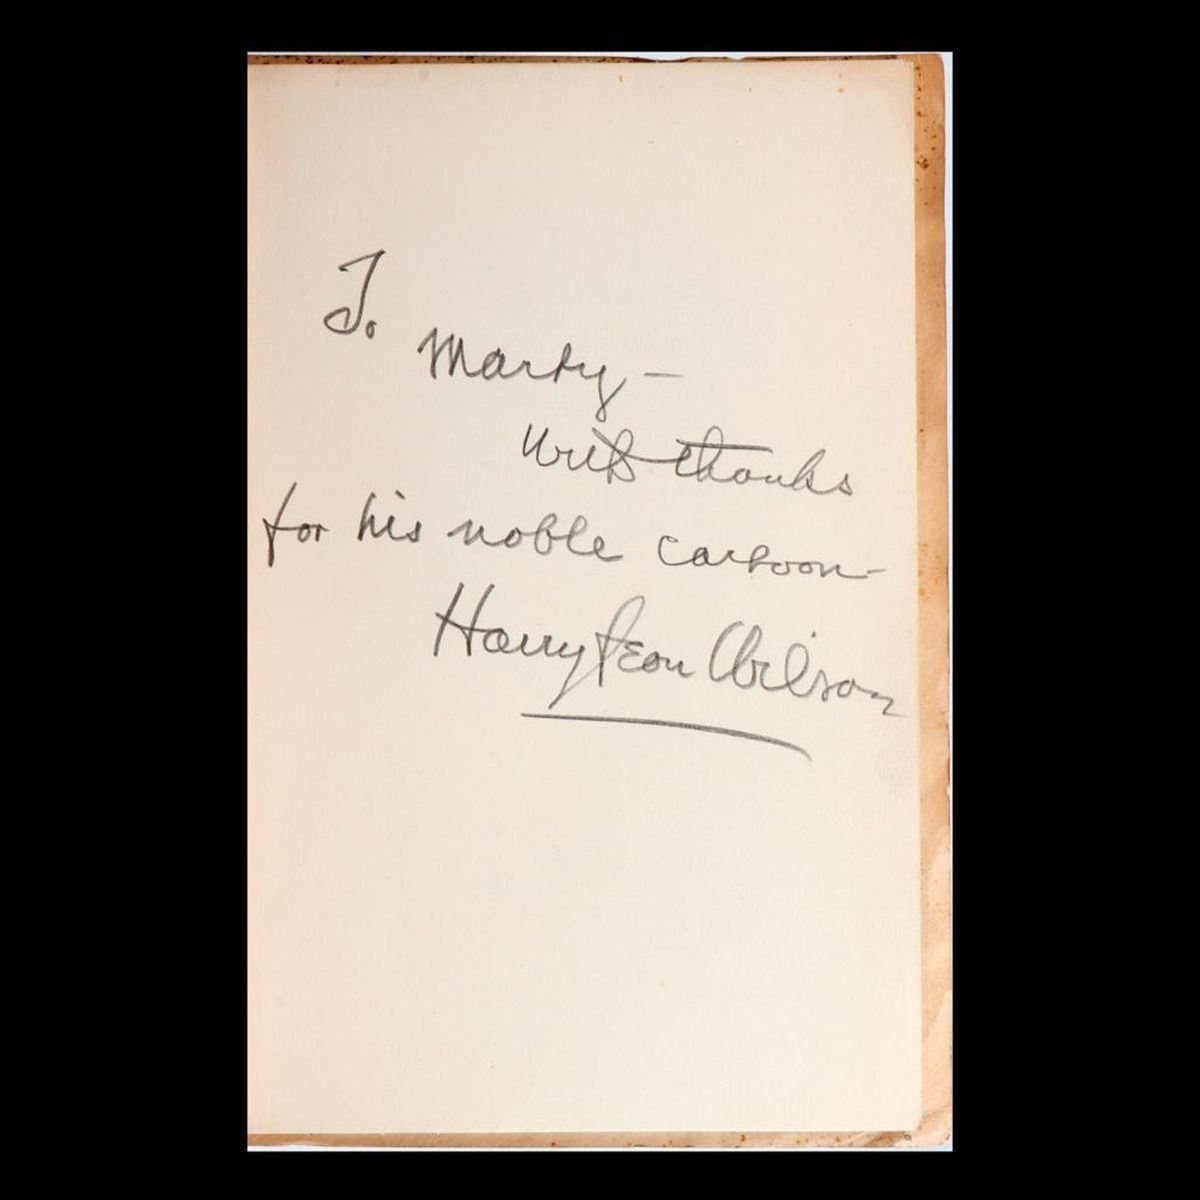 To
Marty —
With thanks
for his noble cartoon—
Harry Leon Wilson